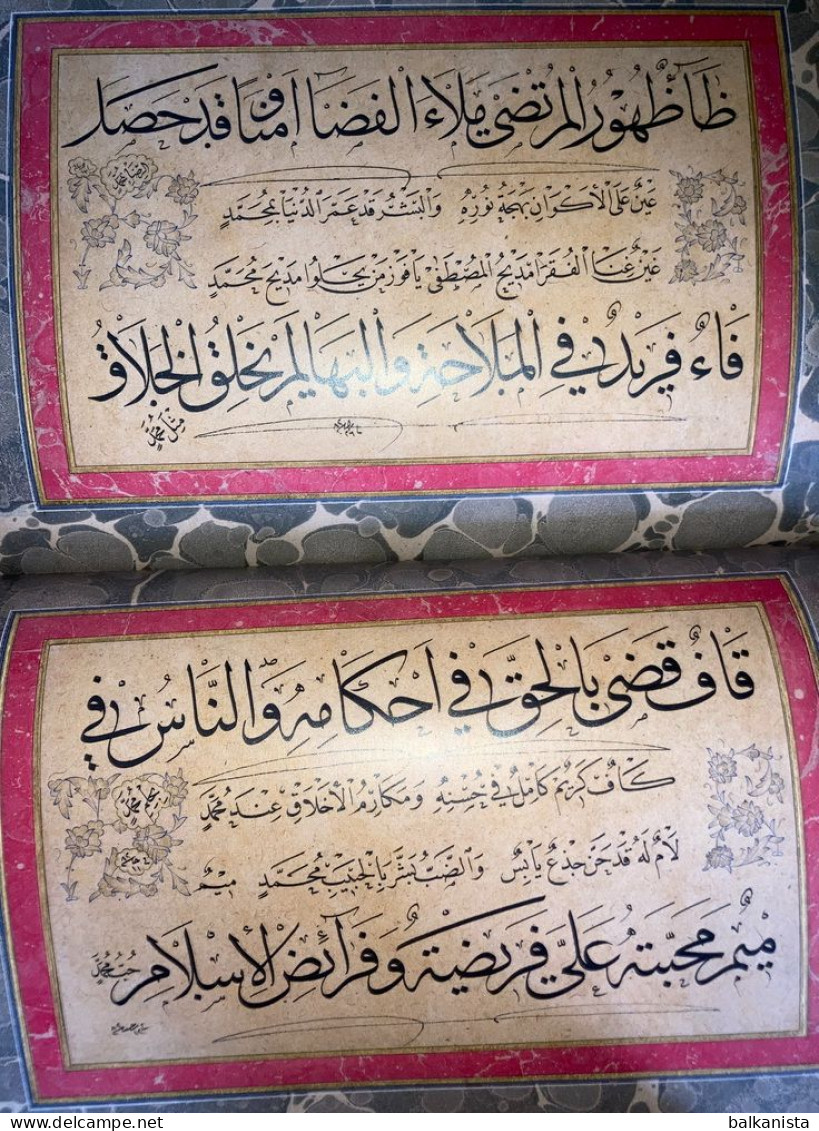 ظَاءٌ ظُهُورُ الْمُرْتَضَى مَلَاءَ الْفَضَاءَ اَمْنًا وَ قَدْ حَصَلَ
عَيْنٌ عَلَى الْأَكْوَانِ بَهْجَةُ نُورِهِ وَالْبِشْرُ قَدْ عَمَّرَ الدُّنْيَا بِمُحَمَّدٍ
غَيْنٌ غِنَا الْفُقَرَا مَدِيحُ الْمُصْطَفٰى يَا فَوْزَ مَنْ يَحْلُوا مَدِيحَ مُحَمَّدٍ
فَاءٌ فَرِيدٌ فِي الْمَلَاحَةِ وَالْبَهَا لَمْ يَخْلُقِ الْخَلَّاقُ
مِثْلَ مُحَمَّدٍ
قَافٌ قَضَى بِالْحَقِّ فِي اَحْكَامِهِ وَالنَّاسُ فِي
كَافٌ كَرِيمٌ كَامِلٌ فِي حُسْنِهِ وَمَكَارِمُ الْأَخْلَاقِ عِنْدَ مُحَمَّدٍ
لَامٌ لَهُ قَدْ حَنَّ جِذْعٌ يَابِسٌ وَالضَّبُّ بَشَّرَ بِالْحَبِيبِ مُحَمَّدٍ مِيمٌ
مِيمٌ مَحَبَّتُهُ عَلَيَّ فَرِيضَةٌ وَفَرَائِضُ الْإِسْلَامِ
حُبُّ مُحَمَّدٍ
balkanista